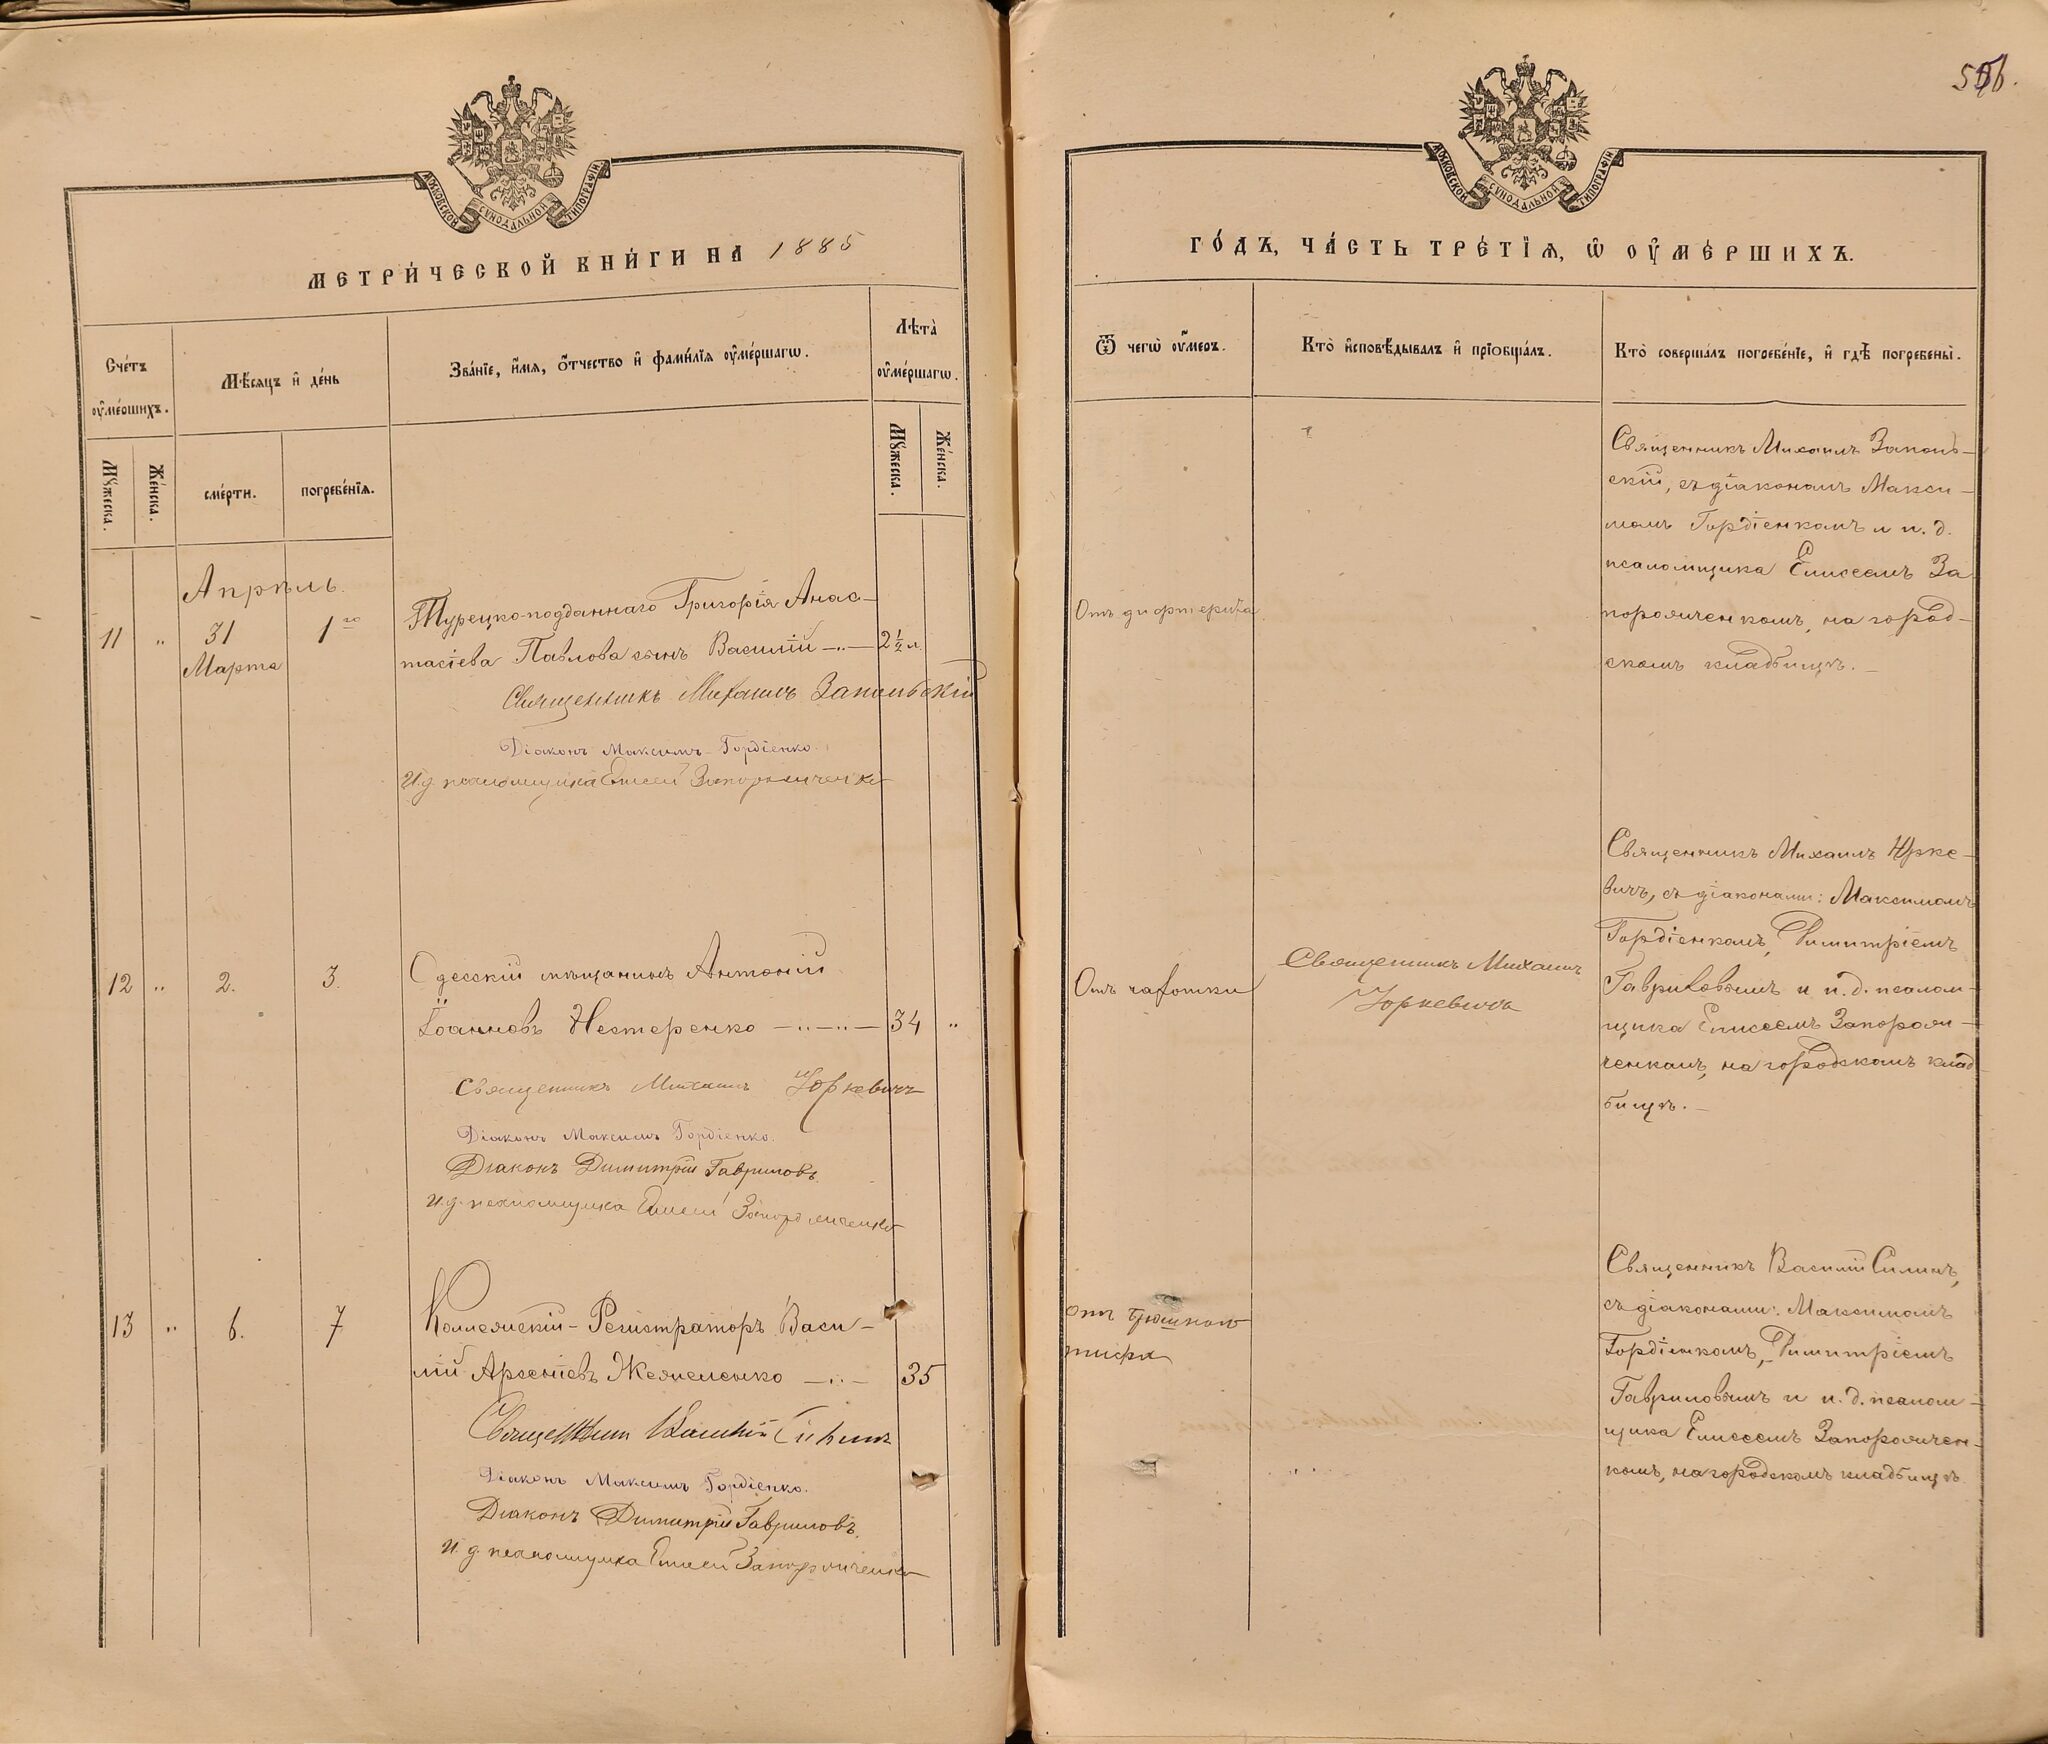 556.
МОСКОВСКОЙ СѴНОДАЛЬНОЙ ТИПОГРАФІИ
МЕТРИ́ЧЕСКОЙ КНИ́ГИ НА 1885
Счéтъ ᲂу҆мéршихъ.
Мѣ́сяцъ и҆ дéнь
Звáнїе, и҆́мя, ѻ҆́тчество и҆ фами́лїѧ ᲂу҆мéршагѡ.
Лѣ́та ᲂу҆мéршагѡ.
Мꙋ́жеска.
Жéнска.
смéрти.
погребéнїѧ.
Мꙋ́жеска.
Жéнска.
Апрѣль.
11 " 31 Марта 1го
Турецко-подданнаго Григорія Анас-
тасіева Павлова сынъ Василій —"— 2½ л.
Священникъ Михаилъ Запольскій
Діаконъ Максимъ Гордіенко.
И. д. псаломщика Елисей Запорожченко
12 " 2. 3.
Одесскій мѣщанинъ Антоній
Іоанновъ Нестеренко —"—"— 34 "
Священникъ Михаилъ Юркевичъ
Діаконъ Максимъ Гордіенко.
Діаконъ Димитрій Гавриловъ.
И. д. псаломщика Елисей Запорожченко
13 " 6. 7.
Коллежскій-Регистраторъ Васи-
лій Арсеніевъ Жежеленко —"— 35
Священникъ Василій Силинъ
Діаконъ Максимъ Гордіенко.
Діаконъ Димитрій Гавриловъ.
И. д. псаломщика Елисей Запорожченко
МОСКОВСКОЙ СѴНОДАЛЬНОЙ ТИПОГРАФІИ
ГО́ДЪ, ЧА́СТЬ ТРÉТІѦ, Ѡ҆ ОУ҆МÉРШИХЪ.
Ѿ чегѡ̀ ᲂу҆́меръ.
Ктò и҆сповѣ́дывалъ и҆ прїѻбщáлъ.
Ктò совершáлъ погребéнїе, и҆ гдѣ̀ погребены̀.
Отъ дифтерита
Священникъ Михаилъ Заполь-
скій, съ діакономъ Макси-
момъ Гордіенкомъ и и. д.
псаломщика Елисеемъ За-
порожченкомъ, на город-
скомъ кладбищѣ.—
Отъ чахотки
Священникъ Михаилъ
Юркевичъ
Священникъ Михаилъ Юрке-
вичъ, съ діаконами: Максимомъ
Гордіенкомъ, Димитріемъ
Гавриловымъ и и. д. псалом-
щика Елисеемъ Запорож-
ченкомъ, на городскомъ клад-
бищѣ.—
отъ брюшного
тифа
Священникъ Василій Силинъ,
съ діаконами: Максимомъ
Гордіенкомъ, Димитріемъ
Гавриловымъ и и. д. псалом-
щика Елисеемъ Запорожчен-
комъ, на городскомъ кладбищѣ.